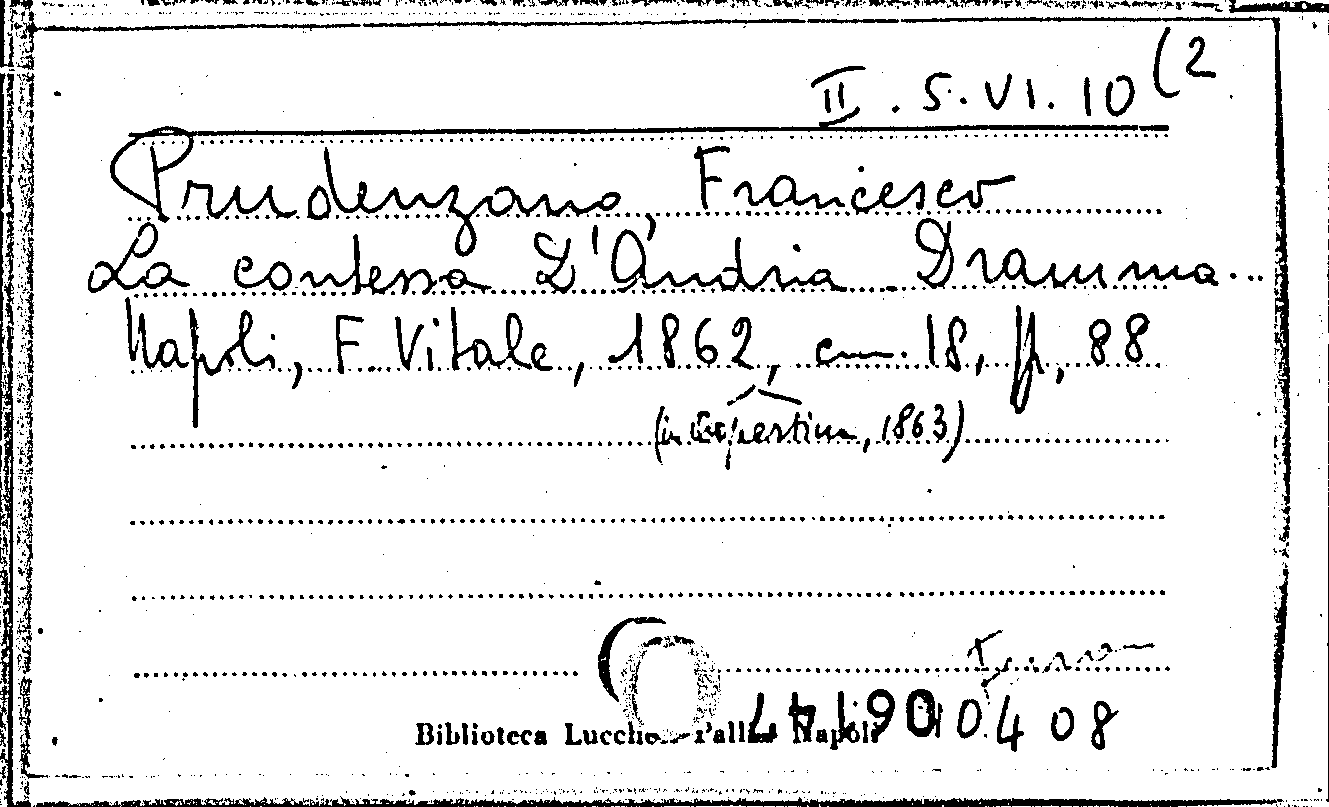 II. 5. VI. 10 (2
Prudenzano, Francesco
La contessa D'Andria. Dramma...
Napoli, F. Vitale, 1862, cm. 18, pp. 88
(in copertina, 1863)
Biblioteca Lucchesi Palli Napoli
0408